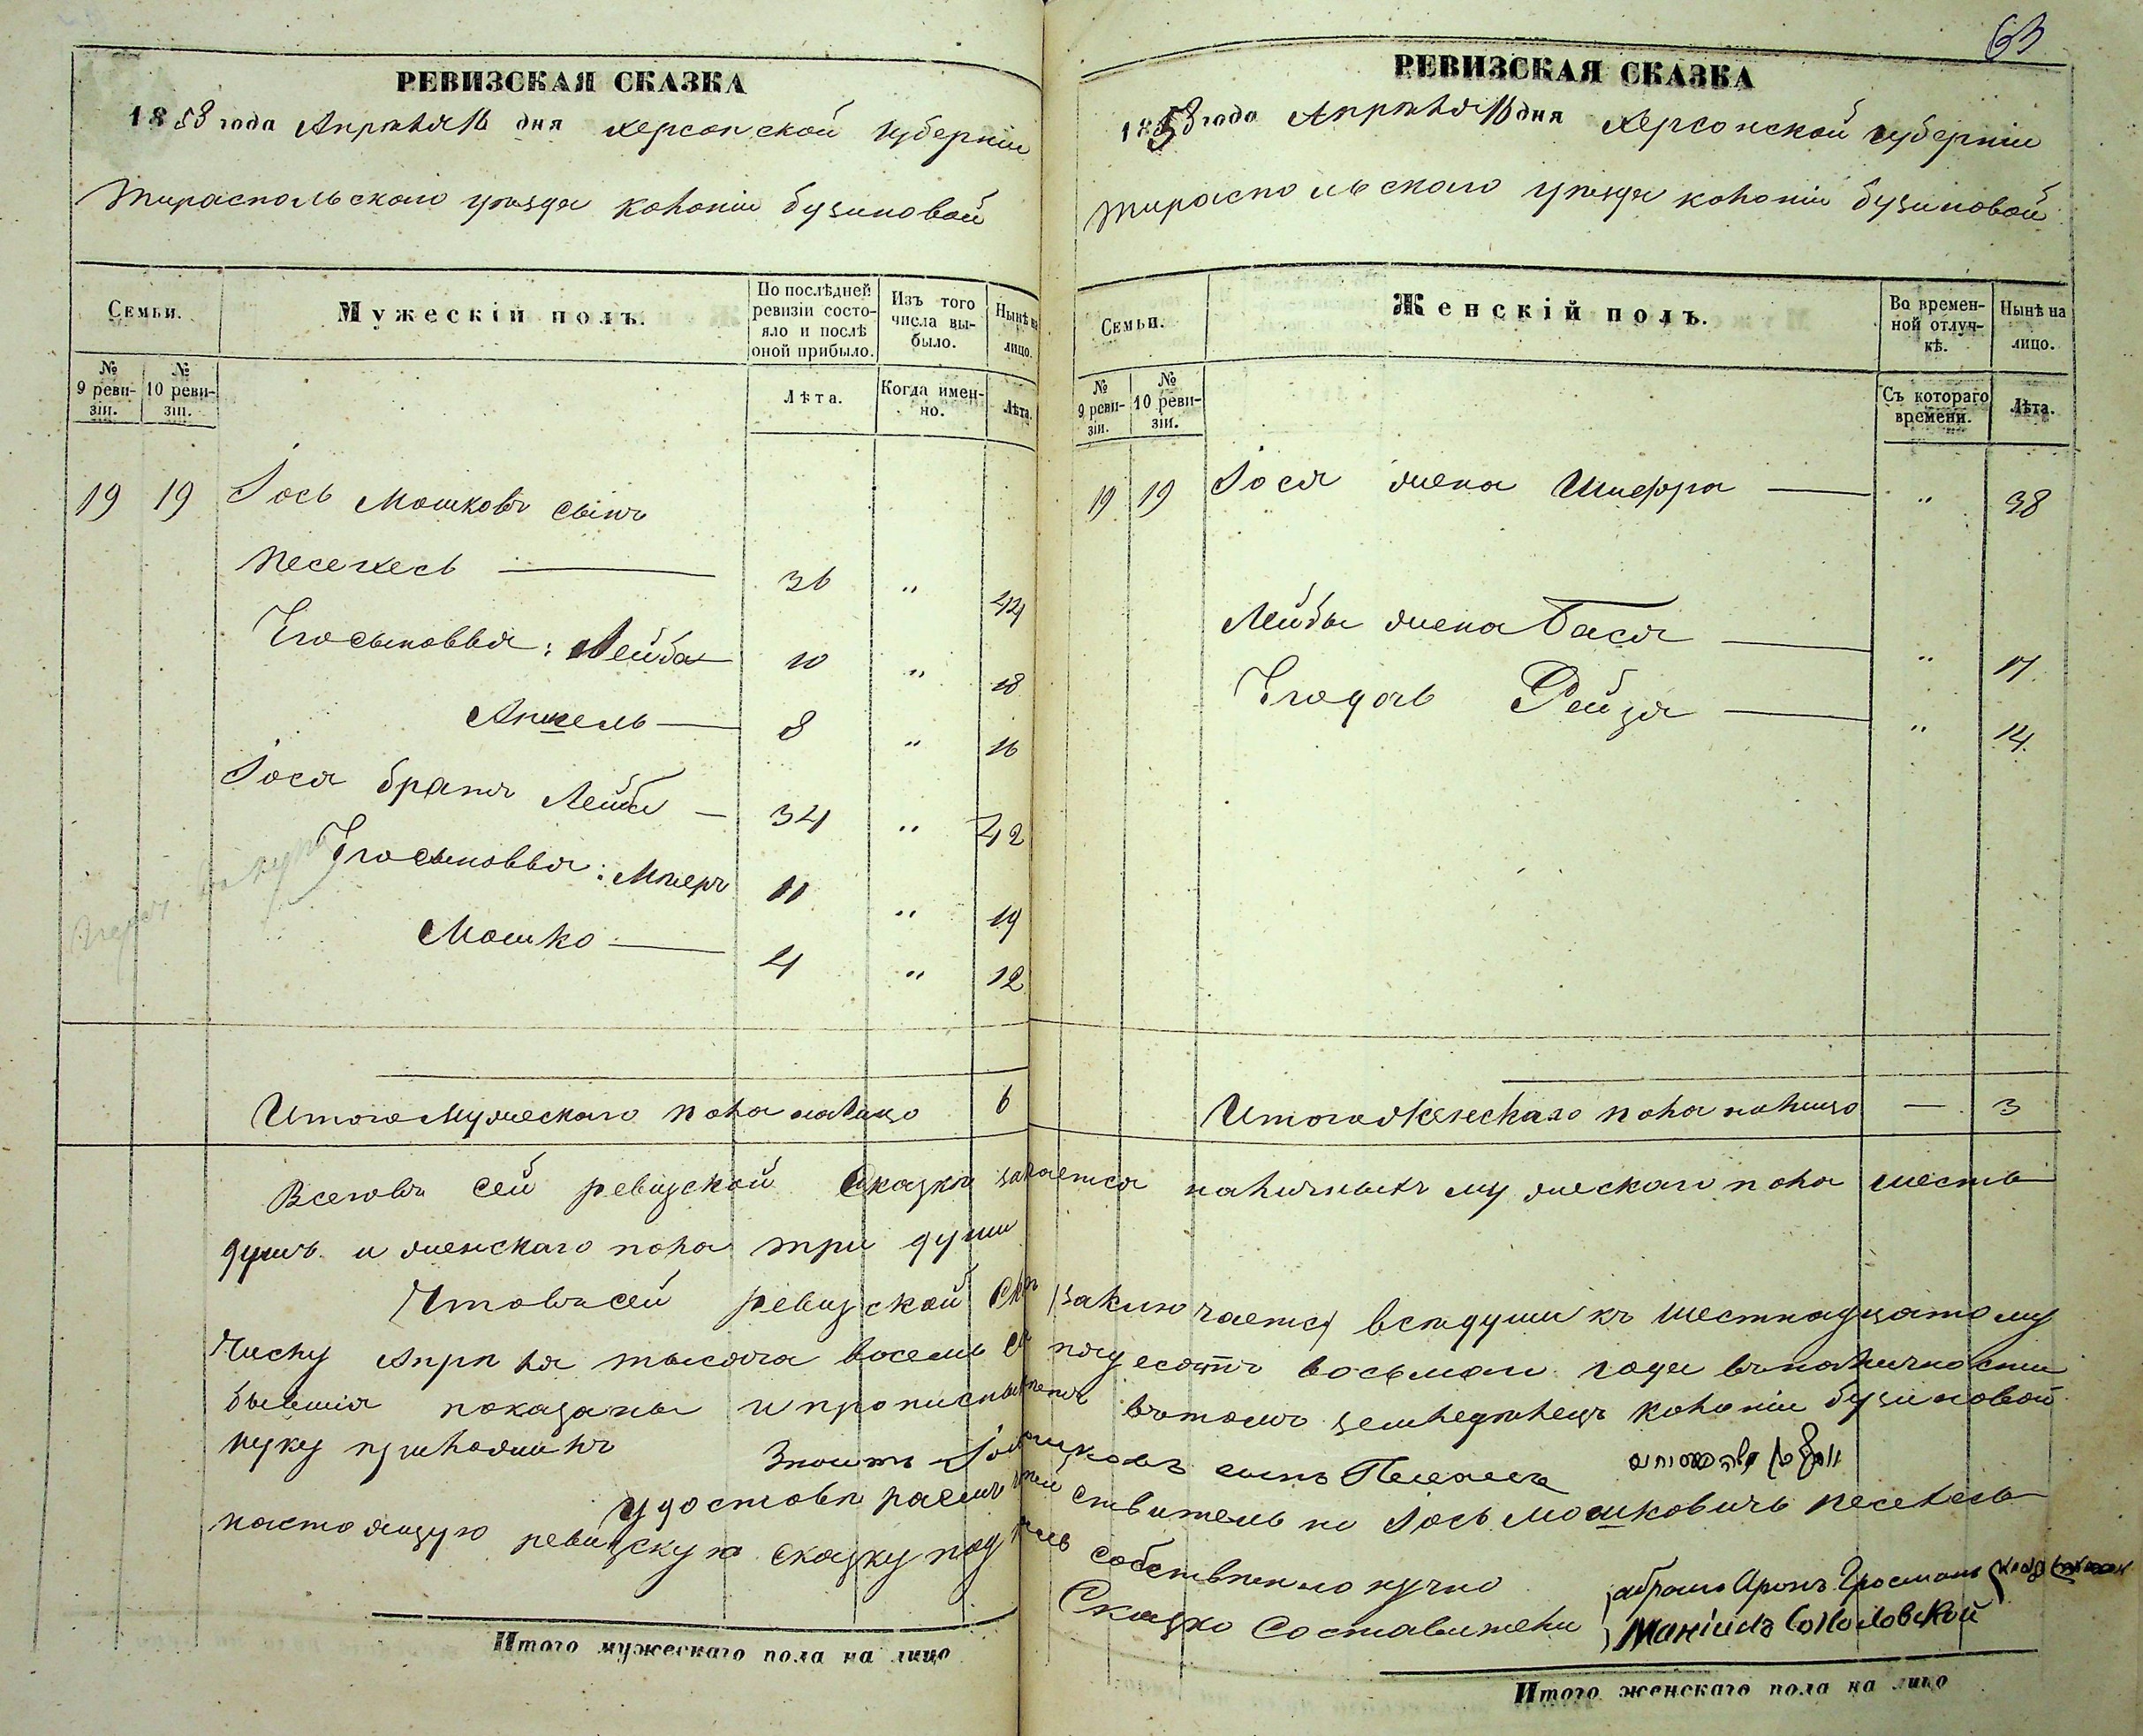 63
РЕВИЗСКАЯ СКАЗКА
1858 года Апрѣля 16 дня Херсонской губерніи
Тираспольскаго уѣзда колоніи Бузиновой
Семьи.
Мужескій полъ.
По послѣдней ревизіи состояло и послѣ оной прибыло.
Изъ того числа выбыло.
Нынѣ на лицо.
№ 9 ревизіи.
№ 10 ревизіи.
Лѣта.
Когда именно.
Лѣта.
19 19 Іось Мошковъ сынъ
Песехесъ — 36 „ 44
Его сыновья: Лейба 10 „ 18
Анкель — 8 „ 16
Іося братъ Лейбъ — 34 „ 42
Его сыновья: Мееръ 11 „ 19
Мошко — 4 „ 12
Итого Мужескаго пола на лицо 6
РЕВИЗСКАЯ СКАЗКА
1858 года Апрѣля 16 дня Херсонской губерніи
Тираспольскаго уѣзда колоніи Бузиновой
Семьи.
Женскій полъ.
Во временной отлучкѣ.
Нынѣ на лицо.
№ 9 ревизіи.
№ 10 ревизіи.
Съ котораго времени.
Лѣта.
19 19 Іося жена Шифра — „ 38
Лейбы жена Бася — „ 17
Его дочь Рейзя — „ 14
Итого Женскаго пола на лицо — 3
Всего въ сей ревизской сказкѣ заключается наличныхъ мужескаго пола шесть
душъ и женскаго пола три души
Что въ сей ревизской заключается всѣ души къ шестнадцатому
числу Апрѣля тысяча восемь пятьдесятъ восьмаго года въ наличности
бывшія показаны и прописныхъ нетъ въ томъ земледѣлецъ колоніи Бузиновой
руку приложилъ
сынъ
Іось Мошковичъ Песехесъ
настоящую ревизскую сказку собственноручно
Сказко Составители
Абрамъ Аронъ Гросманъ
Маніилъ Соколовской
Итого мужескаго пола на лицо
Итого женскаго пола на лицо